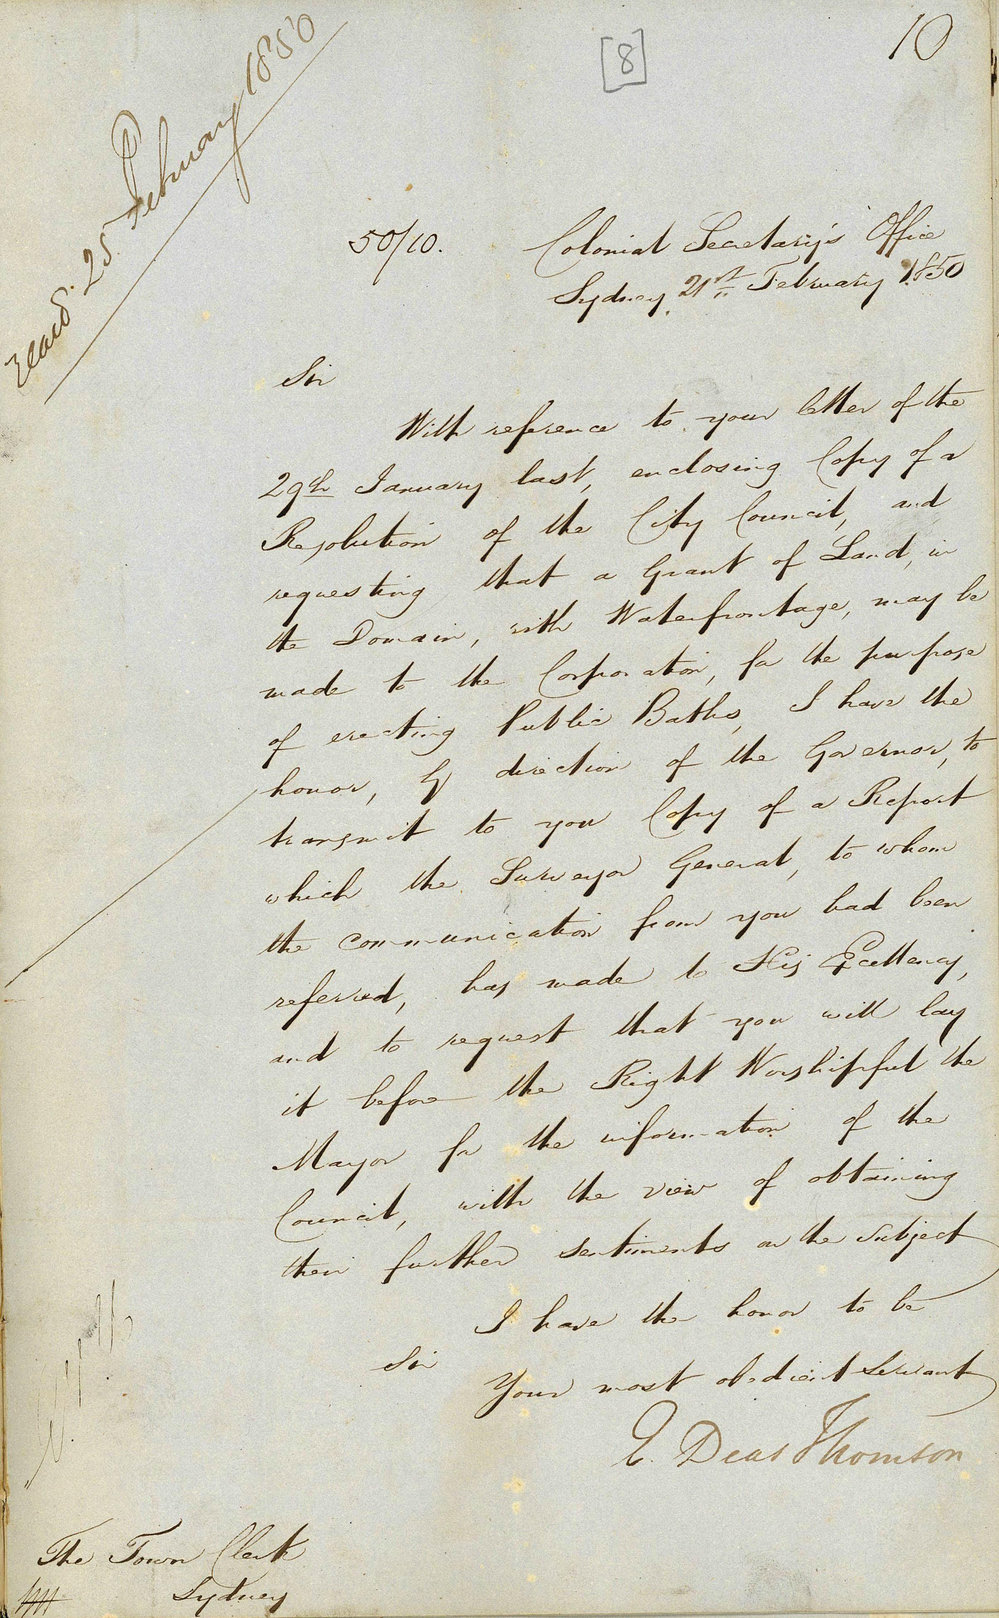 10
[8]
Read. 25 February 1850
50/10.
Colonial Secretary's Office
Sydney, 21st February 1850
Sir
With reference to your letter of the
29th January last, enclosing Copy of a
Resolution of the City Council, and
requesting that a Grant of Land, in
the Domain, with Waterfrontage, may be
made to the Corporation, for the purpose
of erecting Public Baths, I have the
honor, by direction of the Governor, to
transmit to you Copy of a Report
which the Surveyor General, to whom
the communication from you had been
referred, has made to His Excellency,
and to request that you will lay
it before the Right Worshipful the
Mayor for the information of the
Council, with the view of obtaining
their further sentiments on the subject
I have the honor to be
Sir
Your most obedient Servant
E. Deas Thomson
The Town Clerk
Sydney